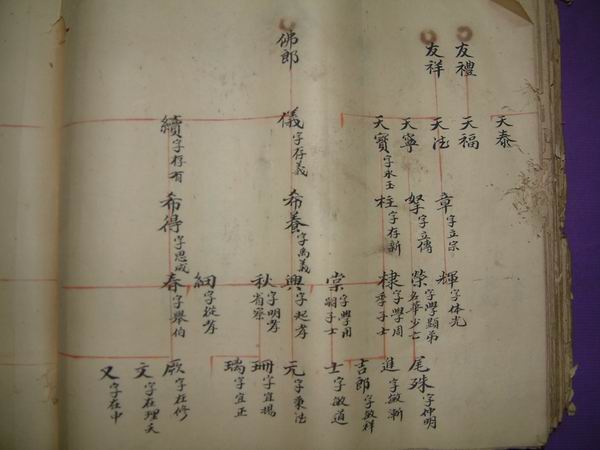 友禮
友祥
佛郎
天泰
天福
天法
天寧
天寶字永玉
儀字存義
續字存有
章字立宗
字立傳
柱字存新
希養字為義
希得字思成
輝字体光
榮字學顯弟
名華少亡
棣字學周
季子士
棠字學用
子士
興字起孝
秋字明孝
省察
細字從孝
春字舉伯
尾殊字仲明
進字敏斬
吉郎字敏祥
士字敏道
元字秉法
珊字宜揚
瑞字宜正
厥字在修
文字在理夭
又字在中